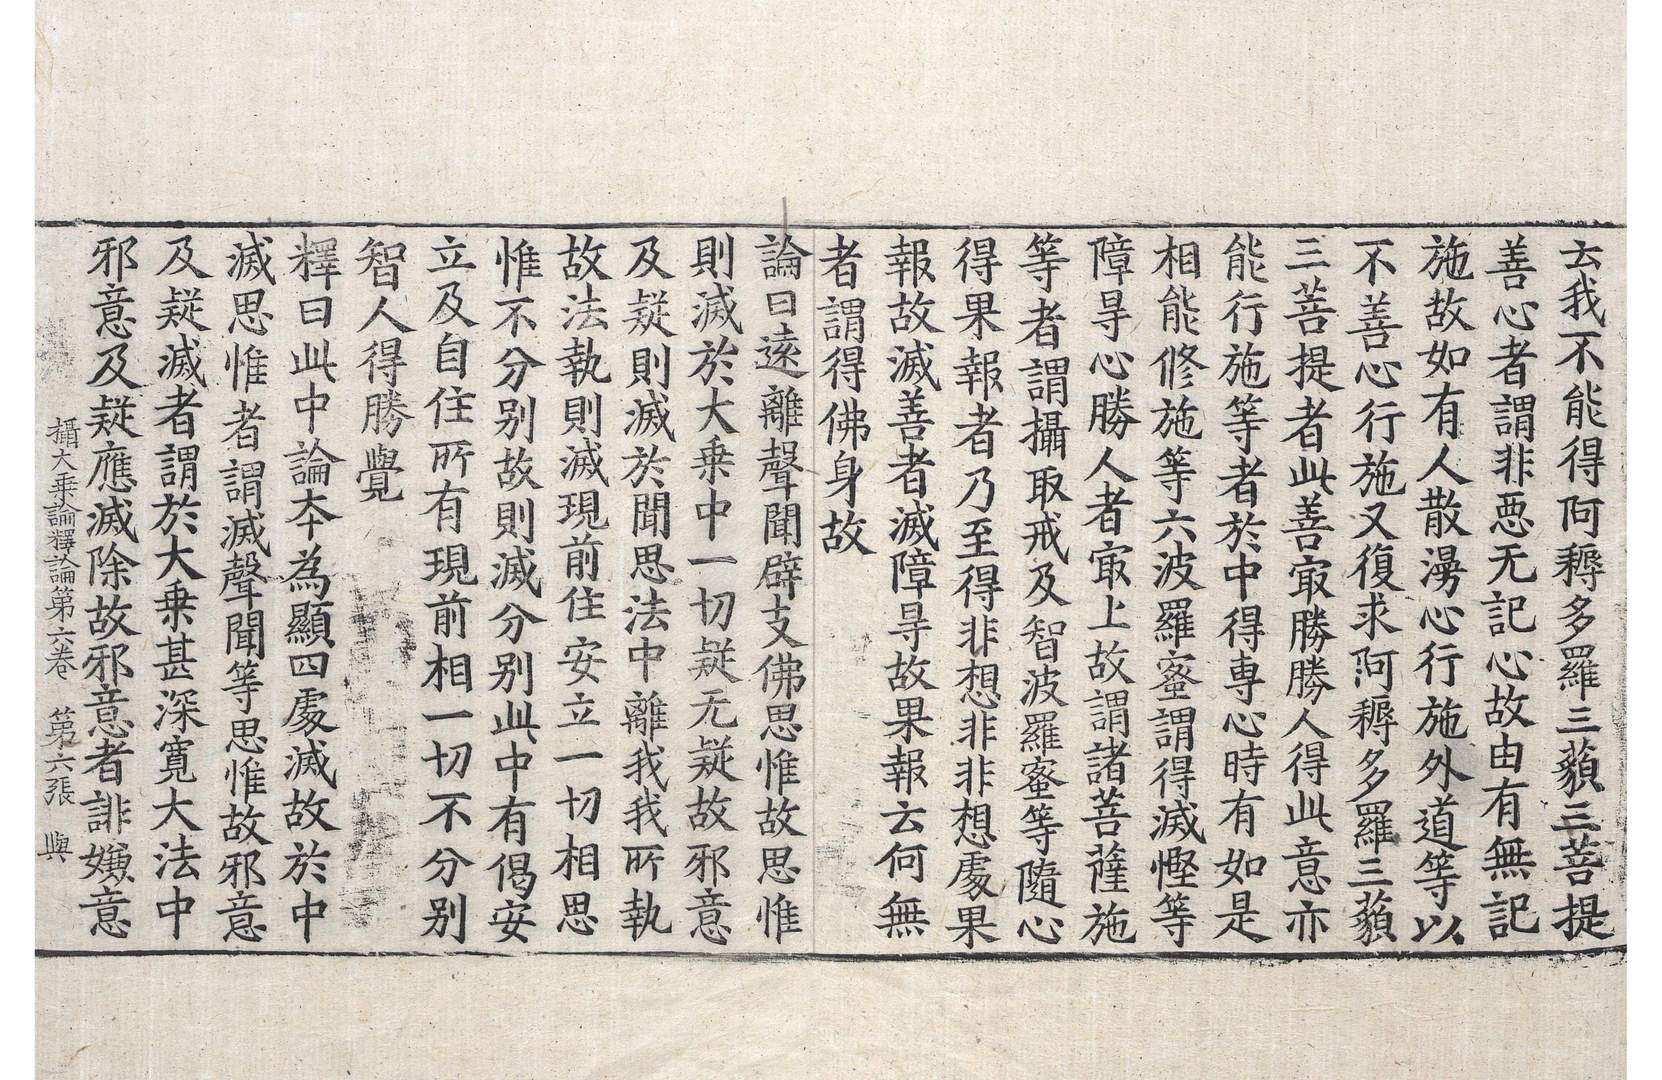 云我不能得阿耨多羅三藐三菩提
善心者謂非惡无記心故由有無記
施故如有人散漫心行施外道等以
不善心行施又復求阿耨多羅三藐
三菩提者此善㝡勝勝人得此意亦
能行施等者於中得專心時有如是
相能修施等六波羅蜜謂得滅慳等
障㝵心勝人者㝡上故謂諸菩薩施
等者謂攝取戒及智波羅蜜等隨心
得果報者乃至得非想非非想處果
報故滅善者滅障㝵故果報云何無
者謂得佛身故
論曰遠離聲聞辟支佛思惟故思惟
則滅於大乗中一切疑无疑故邪意
及疑則滅於聞思法中離我我所執
故法執則滅現前住安立一切相思
惟不分别故則滅分别此中有偈安
立及自住所有現前相一切不分别
智人得勝覺
釋曰此中論本為顯四處滅故於中
滅思惟者謂滅聲聞等思惟故邪意
及疑滅者謂於大乗甚深寬大法中
邪意及疑應滅除故邪意者誹嫌意
攝大乗論釋論第六卷 第六張 與